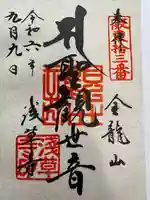 奉拝
坂東拾三番
金龍山
聖観世音
浅草寺
令和六年
九月九日